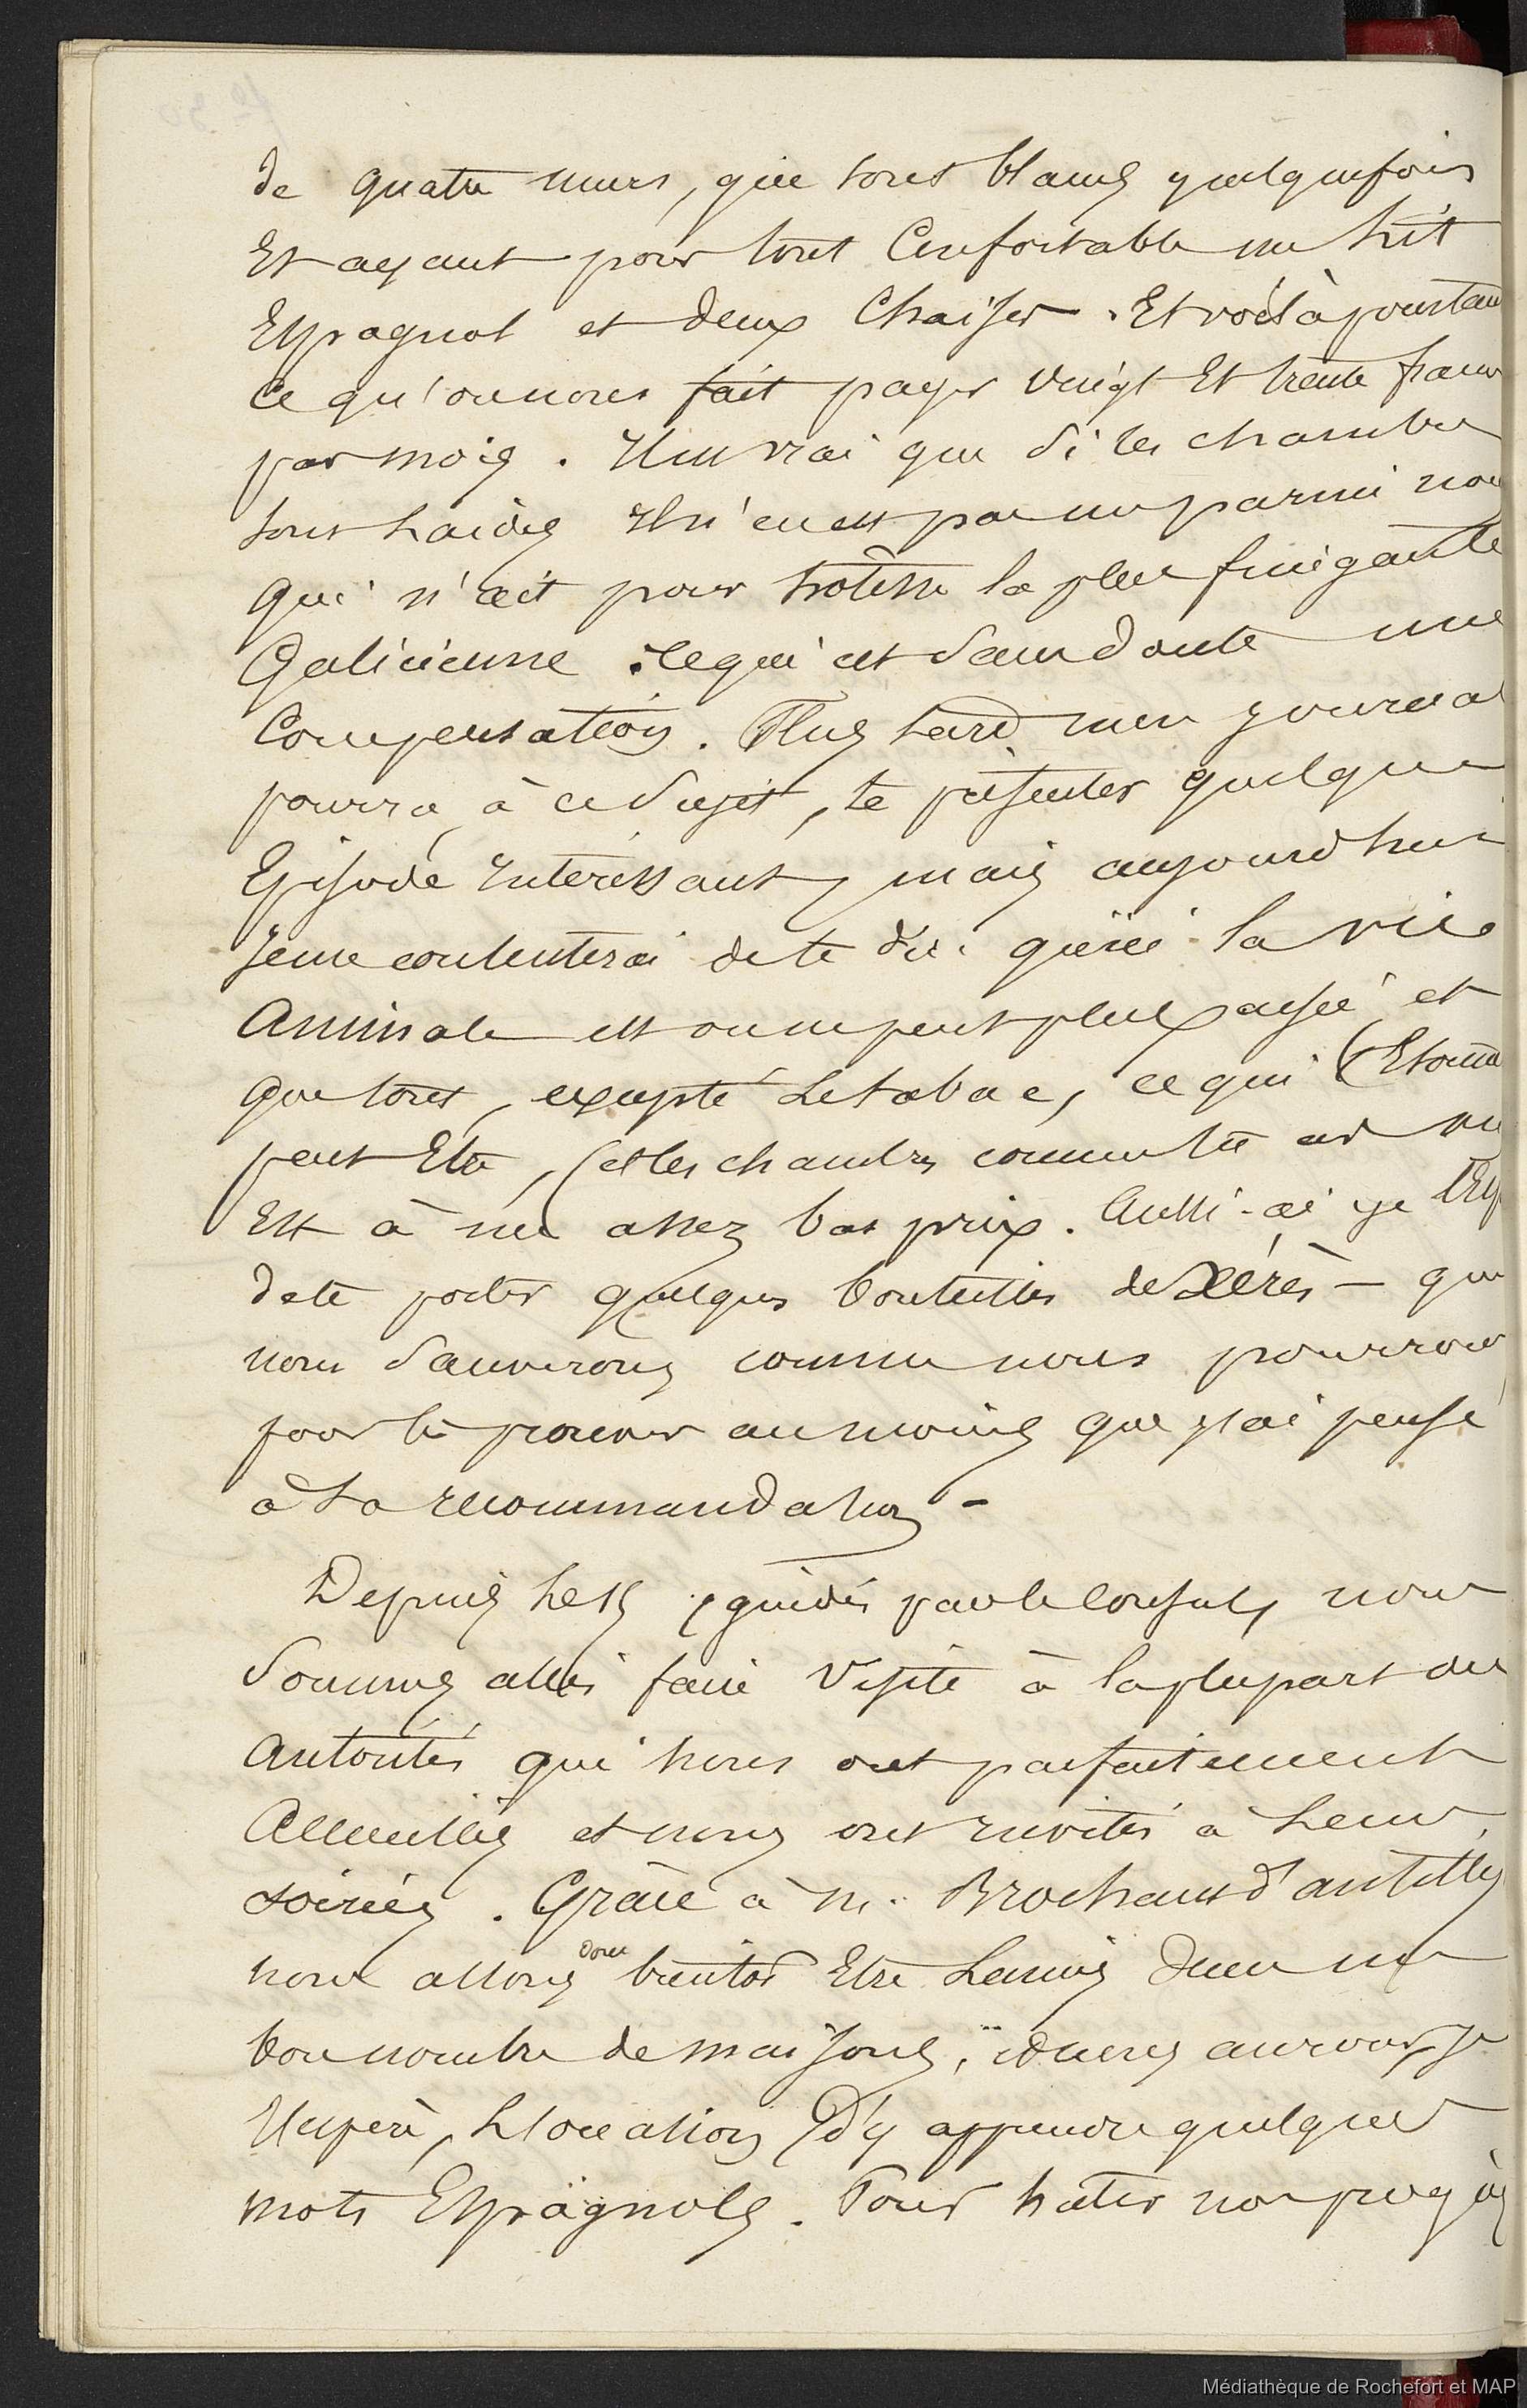 de quatre murs, qui sont blancs quelquefois
Et ayant pour tout Confortable un lit
Espagnol et deux Chaises. Et voilà pourtan
Ce qu'on nous fait payer vingt Et trente francs
par mois. Il est vrai que si les chambres
sont laides Il n'en est pas un parmi nous
qui n'ait pour hôtesse la plus fringante
Galicienne. Ce qui est sans doute une
Compensation. Plus tard mon journal
pourra, à ce sujet, te présenter quelque
Episode Intéressant, mais aujourdhui
Je me contenterai de te dire qu'ici la vie
Animale est on ne peut plus aisée et
que tout, excepté le tabac, ce qui (Etonne
peut Etre, (et les chambres comme tu as vu
Est à un assez bas prix. Aussi-ai je
de te porter quelques bouteilles de Xérès – que
nous sauverons comme nous pourrons
pour te prouver au moins que j'ai pensé
à ta recommandation –
Depuis le 15, guidés par le Consul, nous
Sommes allés faire visite à la plupart des
autorités qui nous ont parfaitement
Accueillis et nous ont invités à leurs
soirées. Grâce à Mr. Brochant d'antilly
nous allons donc bientôt Etre Lancés dans un
bon nombre de maisons, et nous aurons, Je
l'espère, L'occasion d'y apprendre quelques
mots Espagnols. Pour hâter nos progrès
Médiathèque de Rochefort et MAP